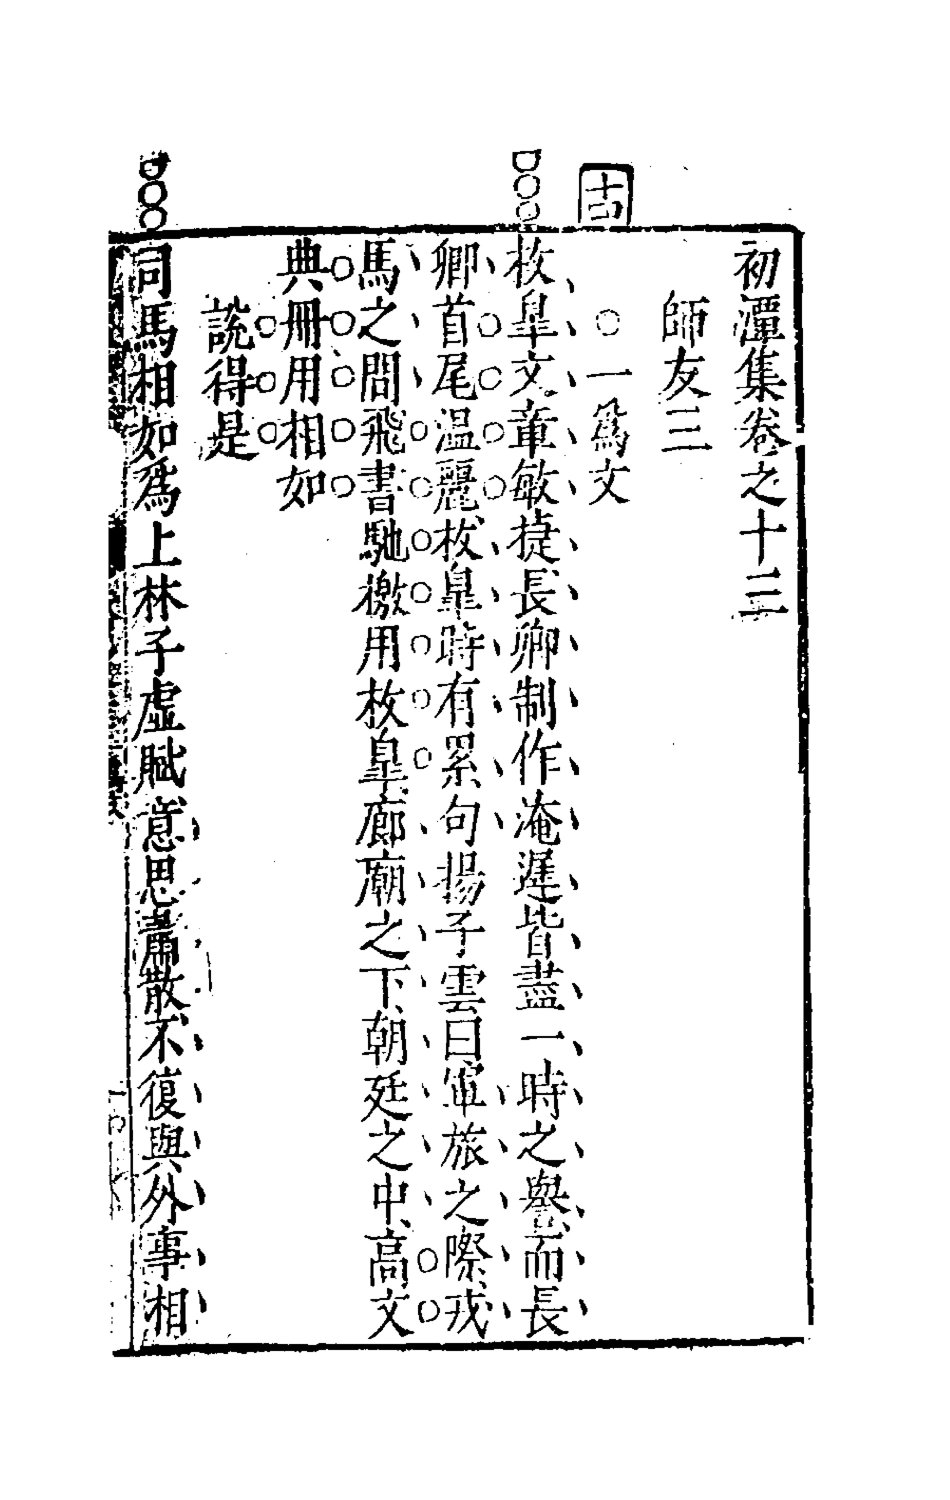 初潭集卷之十三
師友三
○一爲文
枚皐文章敏捷長卿制作淹遲皆盡一時之譽而長
卿首尾温麗枚皐時有累句揚子雲曰軍旅之際戎
馬之間飛書馳檄用枚皐廊廟之下朝廷之中高文
典冊用相如
說得是
司馬相如爲上林子虛賦意思蕭散不復與外事相